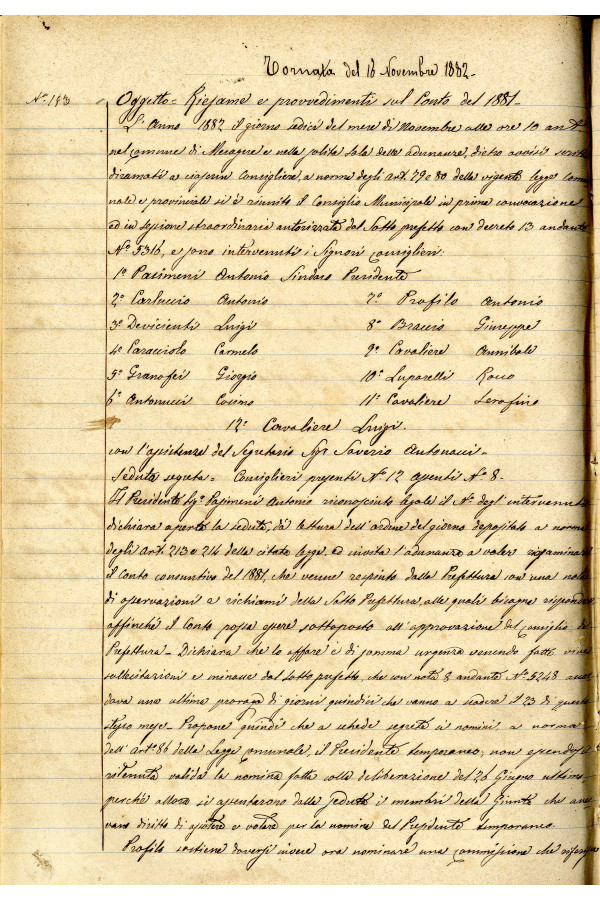 Tornata del 16 Novembre 1882-
N.º 193 Oggetto= Riesame e provvedimenti sul Conto del 1881-
L'Anno 1882 il giorno sedici del mese di Novembre alle ore 10 ant.
nel comune di Mesagne e nella solita sala delle adunanze, dietro avvisi scritti
diramati a ciascun Consigliere, a norma degli art. 79 e 80 della vigente legge Comu
nale e provinciale si è riunito il Consiglio Municipale in prima convocazione
ed in sessione straordinaria autorizzata dal Sotto prefetto con decreto 13 andante
N.º 5316, e sono intervenuti i Signori consiglieri:
1º Pasimeni Antonio Sindaco Presidente
2º Carluccio Antonio 7º Profilo Antonio
3º Devicienti Luigi 8º Braccio Giuseppe
4º Caracciolo Carmelo 9º Cavaliere Annibale
5º Granafei Giorgio 10º Luparelli Rocco
6º Antonucci Cosimo 11º Cavaliere Serafino
12º Cavaliere Luigi.
con l'assistenza del Segretario Sigr Saverio Antonucci-
Seduta segreta= Consiglieri presenti Nº 12 assenti Nº 8-
Il Presidente Sigr Pasimeni Antonio riconosciuto legale il Nº degl'intervenuti
dichiara aperta la seduta, dà lettura dell'ordine del giorno depositato a norma
degli art. 213 e 214 della citata legge, ed invita l'adunanza a voler riesaminare
il Conto consuntivo del 1881, che venne respinto dalla Prefettura con una nota
di osservazioni e richiami della Sotto Prefettura, alle quali bisogna rispondere
affinché il Conto possa essere sottoposto all'approvazione del Consiglio di
Prefettura- Dichiara che lo affare è di somma urgenza venendo fatte vive
sollecitazioni e minacce dal Sotto prefetto, che con nota 8 andante Nº 5248 accor
dava una ultima proroga di giorni quindici che vanno a scadere il 23 di questo
stesso mese- Propone quindi che a schede segrete si nomini, a norma
dell'art. 86 della Legge comunale, il Presidente temporaneo, non essendosi
ritenuta valida la nomina fatta colla deliberazione del 26 Giugno ultimo-
perché allora si assentarono dalla seduta i membri della Giunta che ave
vano diritto di assistere e votare per la nomina del Presidente temporaneo.
Profilo sostiene doversi invece ora nominare una commissione che riferisca